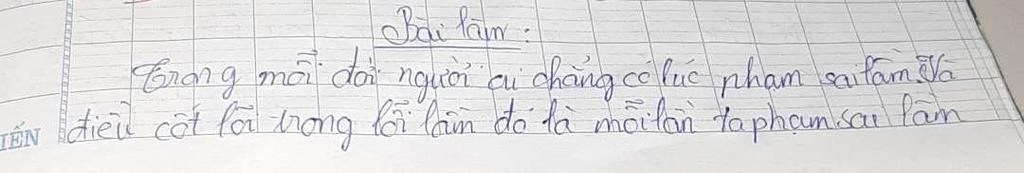 Bài làm:
Trong mỗi đời người ai chẳng có lúc phạm sai lầm. Và
điều cốt lõi trong lỗi lầm đó là mỗi lần ta phạm sai lầm
IẾN